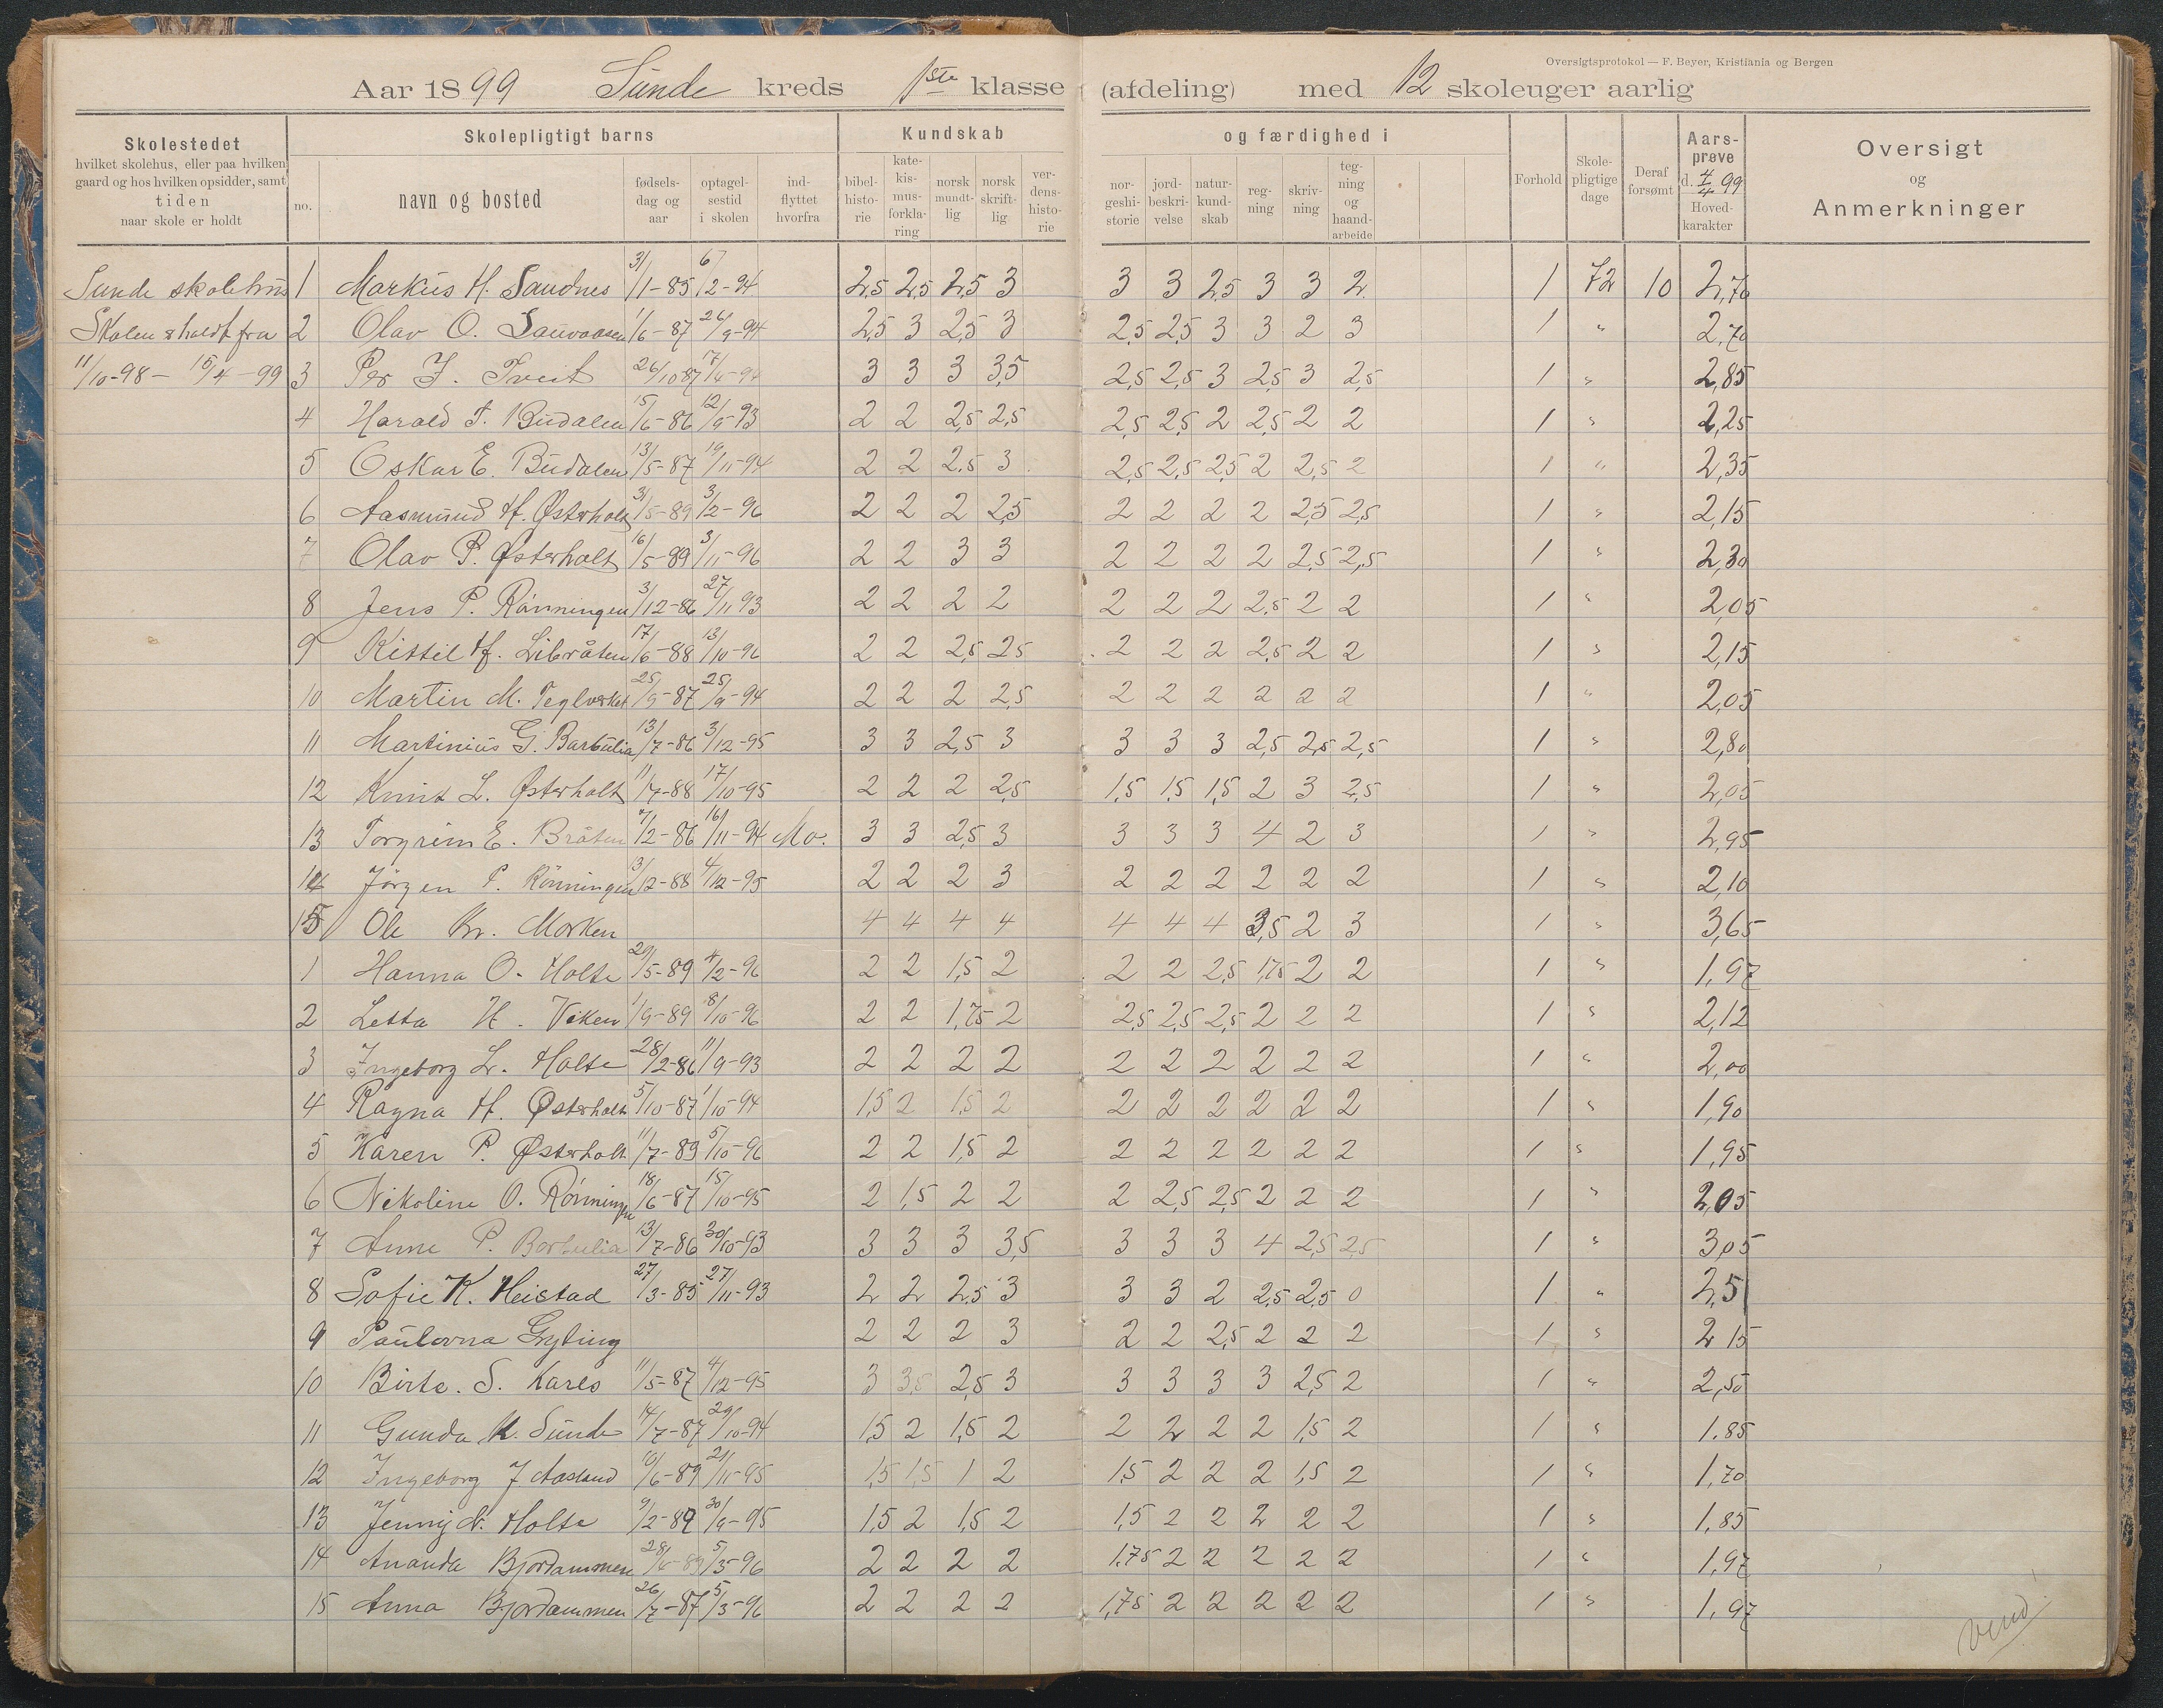 Oversigtsprotokol — F. Beyer, Kristiania og Bergen
Aar 1899 Sunde kreds 1ste klasse (afdeling) med 12 skoleuger aarlig
Skolestedet
hvilket skolehus, eller paa hvilken
gaard og hos hvilken opsidder, samt
tiden
naar skole er holdt
Skolepligtigt barns
no.
navn og bosted
fødsels-
dag og
aar
optagel-
sestid
i skolen
ind-
flyttet
hvorfra
Kundskab
bibel-
histo-
rie
kate-
kis-
mus-
forkla-
ring
norsk
mundt-
lig
norsk
skrift-
lig
ver-
dens-
histo-
rie
og færdighed i
nor-
geshi-
storie
jord-
beskri-
velse
natur-
kund-
skab
reg-
ning
skriv-
ning
teg-
ning
og
haand-
arbeide
Forhold
Skole-
pligtige
dage
Deraf
forsømt
Aars-
prøve
d. 4/4 99
Hoved-
karakter
Oversigt
og
Anmerkninger
Sunde skolehus 1 Markus H. Sandnes 31/1-85 6/2-94 2,5 2,5 2,5 3 3 3 2,5 3 3 2 1 72 10 2,70
Skolen holdt fra 2 Olav O. 1/6-87 26/9-94 2,5 3 2,5 3 2,5 2,5 3 3 2 3 1 " 2,70
11/10-98 — 15/4-99 3 Per J. Tveit 26/10 87 17/4-94 3 3 3 3,5 2,5 2,5 3 2,5 3 2,5 1 " 2,85
4 Harald T. Budalen 15/6-86 12/9-93 2 2 2,5 2,5 2,5 2,5 2 2,5 2 2 1 " 2,25
5 Oskar E. Budalen 13/5-87 19/11-94 2 2 2,5 3 2,5 2,5 2,5 2 2,5 2 1 " 2,35
6 Aasmund H. Østerholt 31/5-89 3/2-96 2 2 2 2,5 2 2 2 2 2,5 2,5 1 " 2,15
7 Olav P. Østerholt 16/5-89 3/11-96 2 2 3 3 2 2 2 2 2,5 2,5 1 " 2,30
8 Jens P. Rønningen 3/12-86 27/11 93 2 2 2 2 2 2 2 2,5 2 2 1 " 2,05
9 Kittil H. Libråten 17/6-88 13/10-96 2 2 2,5 2,5 2 2 2 2,5 2 2 1 " 2,15
10 Martin M. Teglverket 25/9-87 25/9-94 2 2 2 2,5 2 2 2 2 2 2 1 " 2,05
11 Martinius G. Barbulia 13/7-86 3/12-95 3 3 2,5 3 3 3 3 2,5 2,5 2,5 1 " 2,80
12 Knut L. Østerholt 11/7-88 17/10-95 2 2 2 2,5 1,5 1,5 1,5 2 3 2,5 1 " 2,05
13 Torgrim E. Bråten 7/2-86 16/11-94 Mo. 3 3 2,5 3 3 3 3 4 2 3 1 " 2,95
14 Jörgen P. Rönningen 13/12-88 4/12-95 2 2 2 3 2 2 2 2 2 2 1 " 2,10
15 Ole Kr. Morken 4 4 4 4 4 4 4 3,5 2 3 1 " 3,65
1 Hanna O. Holte 29/5-89 4/2-96 2 2 1,5 2 2 2 2,5 1,75 2 2 1 " 1,97
2 Letta H. Viken 1/9-89 8/10-96 2 2 1,75 2 2,5 2,5 2,5 2 2 2 1 " 2,12
3 Ingeborg L. Holte 28/2-86 11/9-93 2 2 2 2 2 2 2 2 2 2 1 " 2,00
4 Ragna H. Østerholt 5/10-87 1/10-94 1,5 2 1,5 2 2 2 2 2 2 2 1 " 1,90
5 Karen P. Østerholt 11/7-89 5/10-96 2 2 1,5 2 2 2 2 2 2 2 1 " 1,95
6 Nikoline O. Rønningen 18/6-87 15/10-95 2 1,5 2 2 2 2,5 2,5 2 2 2 1 " 2,05
7 Anne P. Barbulia 13/7-86 30/10-93 3 3 3 3,5 3 3 3 4 2,5 2,5 1 " 3,05
8 Sofie K. Heistad 27/3-85 27/11-93 2 2 2,5 3 3 3 2 2,5 2,5 0 1 " 2,5
9 Gyting 2 2 2 3 2 2 2,5 2 2 2 1 " 2 15
10 Birte. S. Kares 11/5-87 4/12-95 3 3,5 2,5 3 3 3 3 3 2,5 2 1 " 2,50
11 Gunda K. Sunde 14/7-87 29/10-94 1,5 2 1,5 2 2 2 2 2 1,5 2 1 " 1.85
12 Ingeborg J. Aasland 10/6-89 21/11-95 1,5 1,5 1 2 1,5 2 2 2 1,5 2 1 " 1,70
13 Jenny N. Holte 9/2-89 30/9-95 1,5 2 1,5 2 1,5 2 2 2 2 2 1 " 1,85
14 Ananda Bjordammen 28/6-89 5/3-96 2 2 2 2 1.75 2 2 2 2 2 1 " 1,97
15 Anna Bjordammen 26/7-87 5/3-96 2 2 2 2 1,75 2 2 2 2 2 1 " 1,97
Vend!